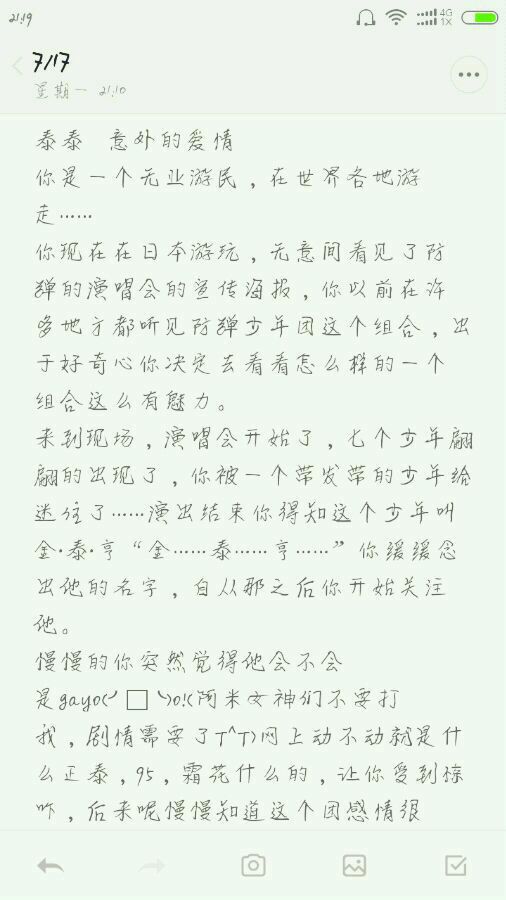 21:19
4G
1X
7/17
星期一 21:10
泰泰 意外的爱情
你是一个无业游民，在世界各地游
走……
你现在在日本游玩，无意间看见了防
弹的演唱会的宣传海报，你以前在许
多地方都听见防弹少年团这个组合，出
于好奇心你决定去看看怎么样的一个
组合这么有魅力。
来到现场，演唱会开始了，七个少年翩
翩的出现了，你被一个带发带的少年给
迷住了……演出结束你得知这个少年叫
金·泰·亨“金……泰……亨……”你缓缓念
出他的名字，自从那之后你开始关注
他。
慢慢的你突然觉得他会不会
是gayo(╯□╰)o!(阿米女神们不要打
我，剧情需要了T^T)网上动不动就是什
么正泰，95，霜花什么的，让你受到惊
吓，后来呢慢慢知道这个团感情很